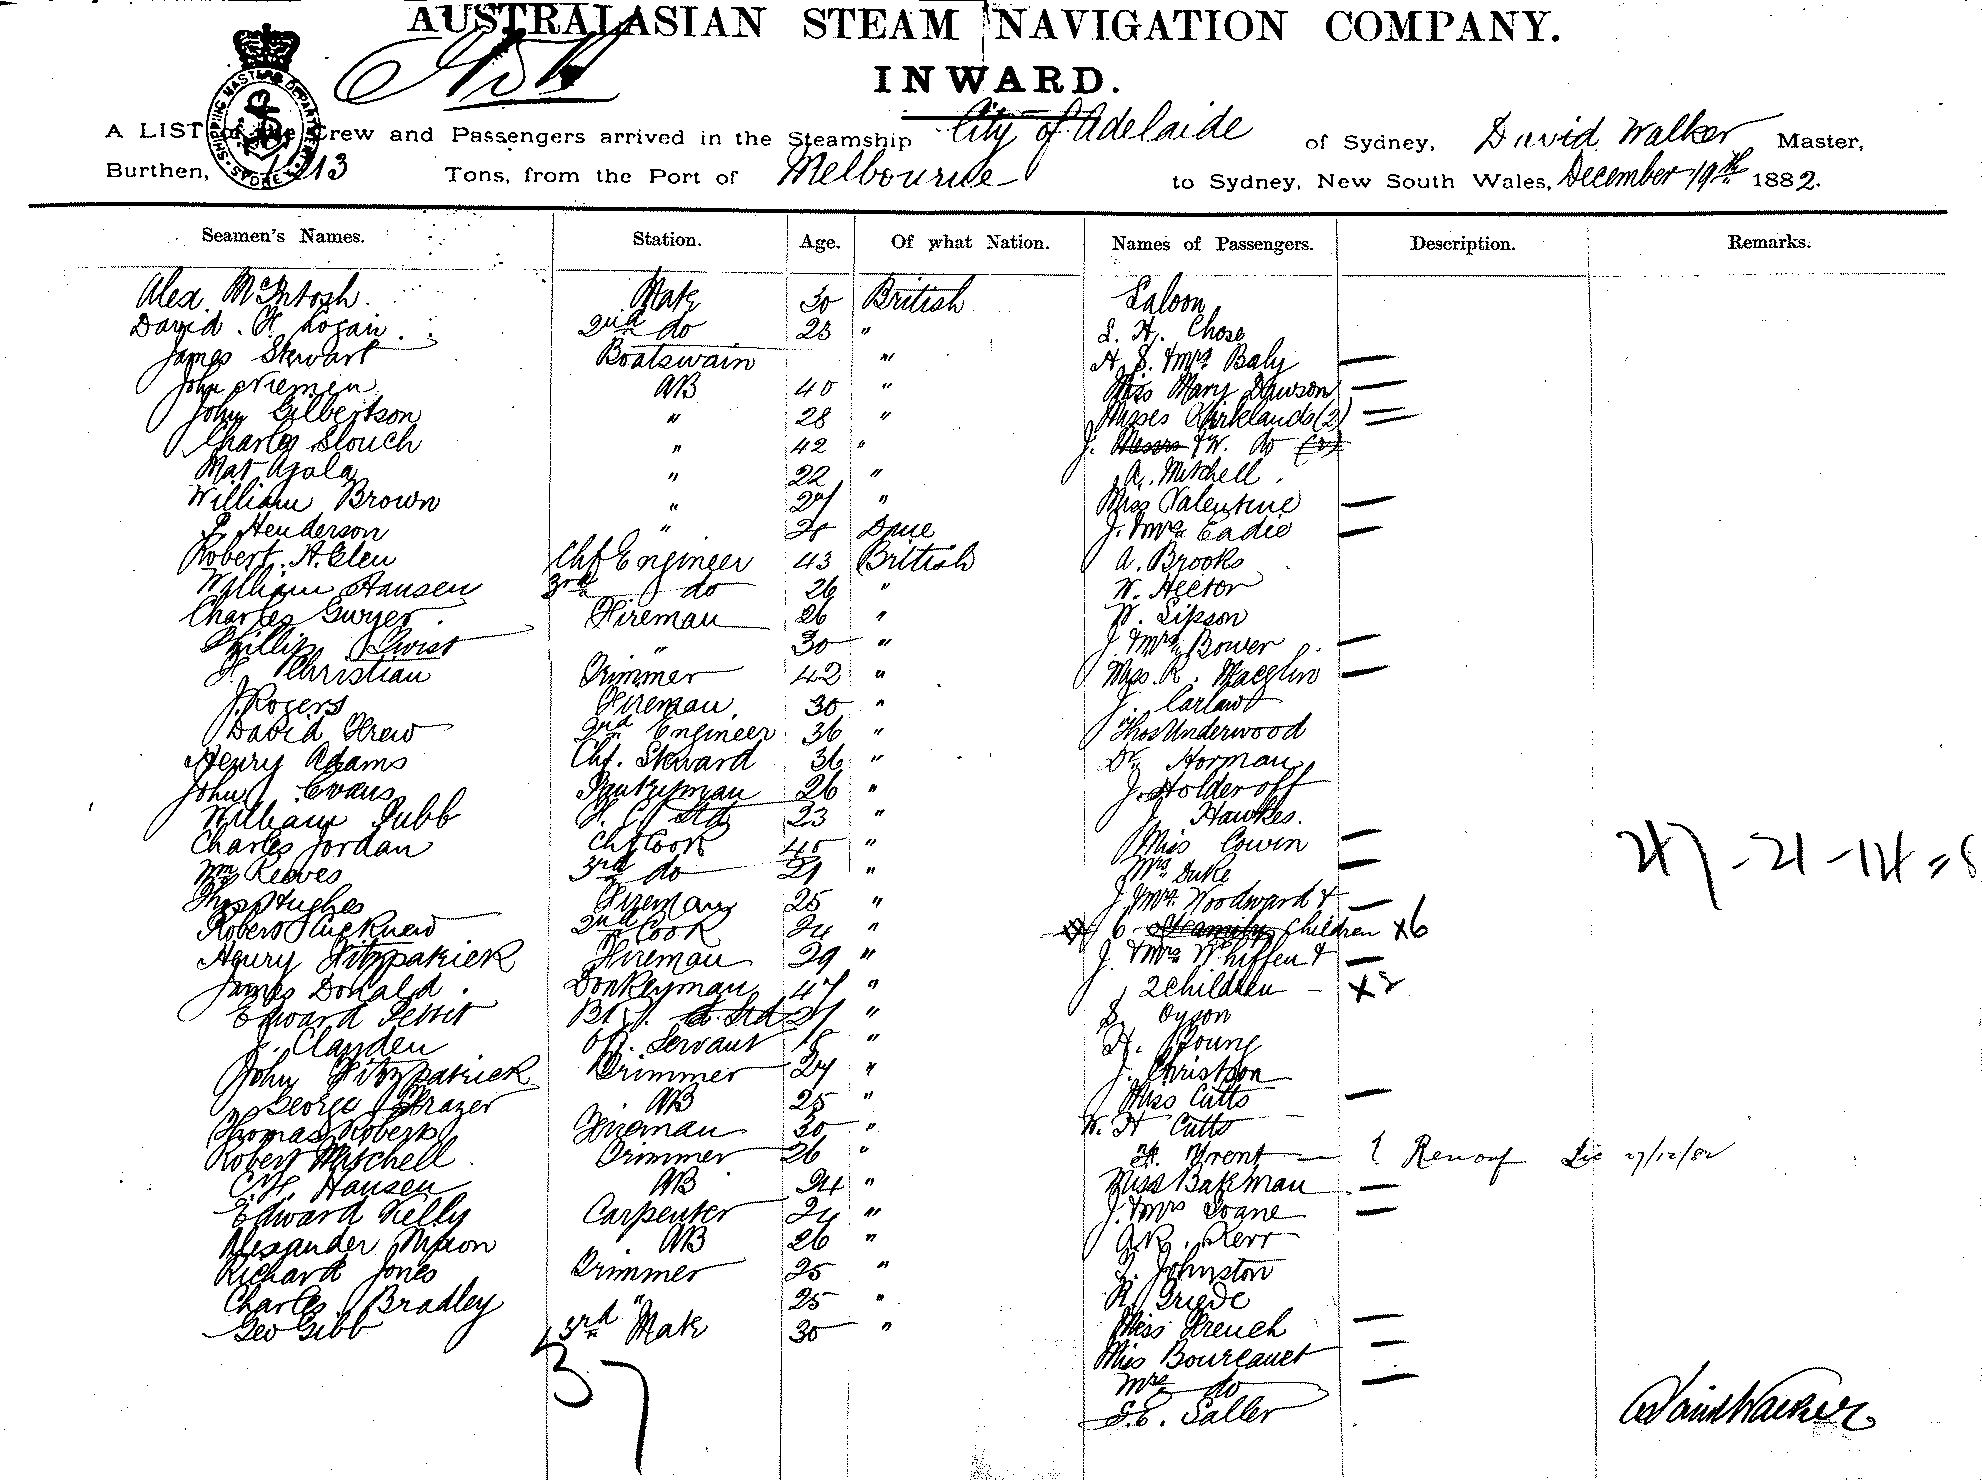 AUSTRALASIAN STEAM NAVIGATION COMPANY.
INWARD.
A LIST of the Crew and Passengers arrived in the Steamship City of Adelaide of Sydney, David Walker Master,
Burthen, Tons, from the Port of Melbourne to Sydney, New South Wales, December 19th 1882.
Seamen's Names. Station. Age. Of what Nation. Names of Passengers. Description. Remarks.
Alex. McIntosh. Mate 30 British Saloon
David. Logan 2nd do 23 " S. H. Chose
James Stewart Boatswain " A. S. & Mrs Baly —
John Niemen AB 40 " Miss Mary Dawson —
John Gilbertson " 28 " Misses Kirklands (2) =
Charles Slouch " 42 " J. & W. do
Mat. Ajola " 22 " A. Mitchell
William Brown " 27 " Miss Valentine —
P. Henderson " Dane J. & Mrs Eadie —
Robert. A. Glen Chf Engineer 43 British A. Brooks
William Hansen 3rd do 26 " W. Hector
Charles Gwyer Fireman 26 " W. Lipson
Phillip " 30 " J. & Mrs Bower —
Christian Trimmer 42 " Miss. R. —
J. Rogers Fireman 30 " J.
David Drew 2nd Engineer 36 " Thos Underwood
Henry Adams Chf. Steward 36 " Dr Horman
John Evans Pantryman 26 " J. Holderoff
William 23 " J. Hawkes.
Charles Jordan Chf Cook 45 " Miss Cowin —
Wm Reeves 3rd do 21 " Mrs Duke —
47 - 21 - 14 =
Thos Hughes Fireman 25 " J. & Mrs Woodward & —
Robert 2nd Cook 24 " 6 Children x6
Henry Fitzpatrick Fireman 29 " J. & Mrs Whiffen & —
James Donald Donkeyman 47 " 2 Children — x2
Edward Pettit " S. Dyson
Clayden Servant 18 " H. Young
John Fitzpatrick Trimmer 27 " J. Christson
George Frazer AB 25 " Miss Cutts —
Thomas Roberts Fireman 30 " W. H. Cutts
Robert Mitchell Trimmer 26 "
C. H. Hansen AB 24 " Miss Bateman —
Edward Kelly Carpenter 24 " J. & Mrs Doane —
Alexander AB 26 " Kerr
Richard Jones Trimmer 25 " Johnston
Charles Bradley " 25 " R. Griede
Geo Gibb 3rd Mate 30 " Miss French —
37 Miss —
Mrs do —
S. E. Saller
David Walker